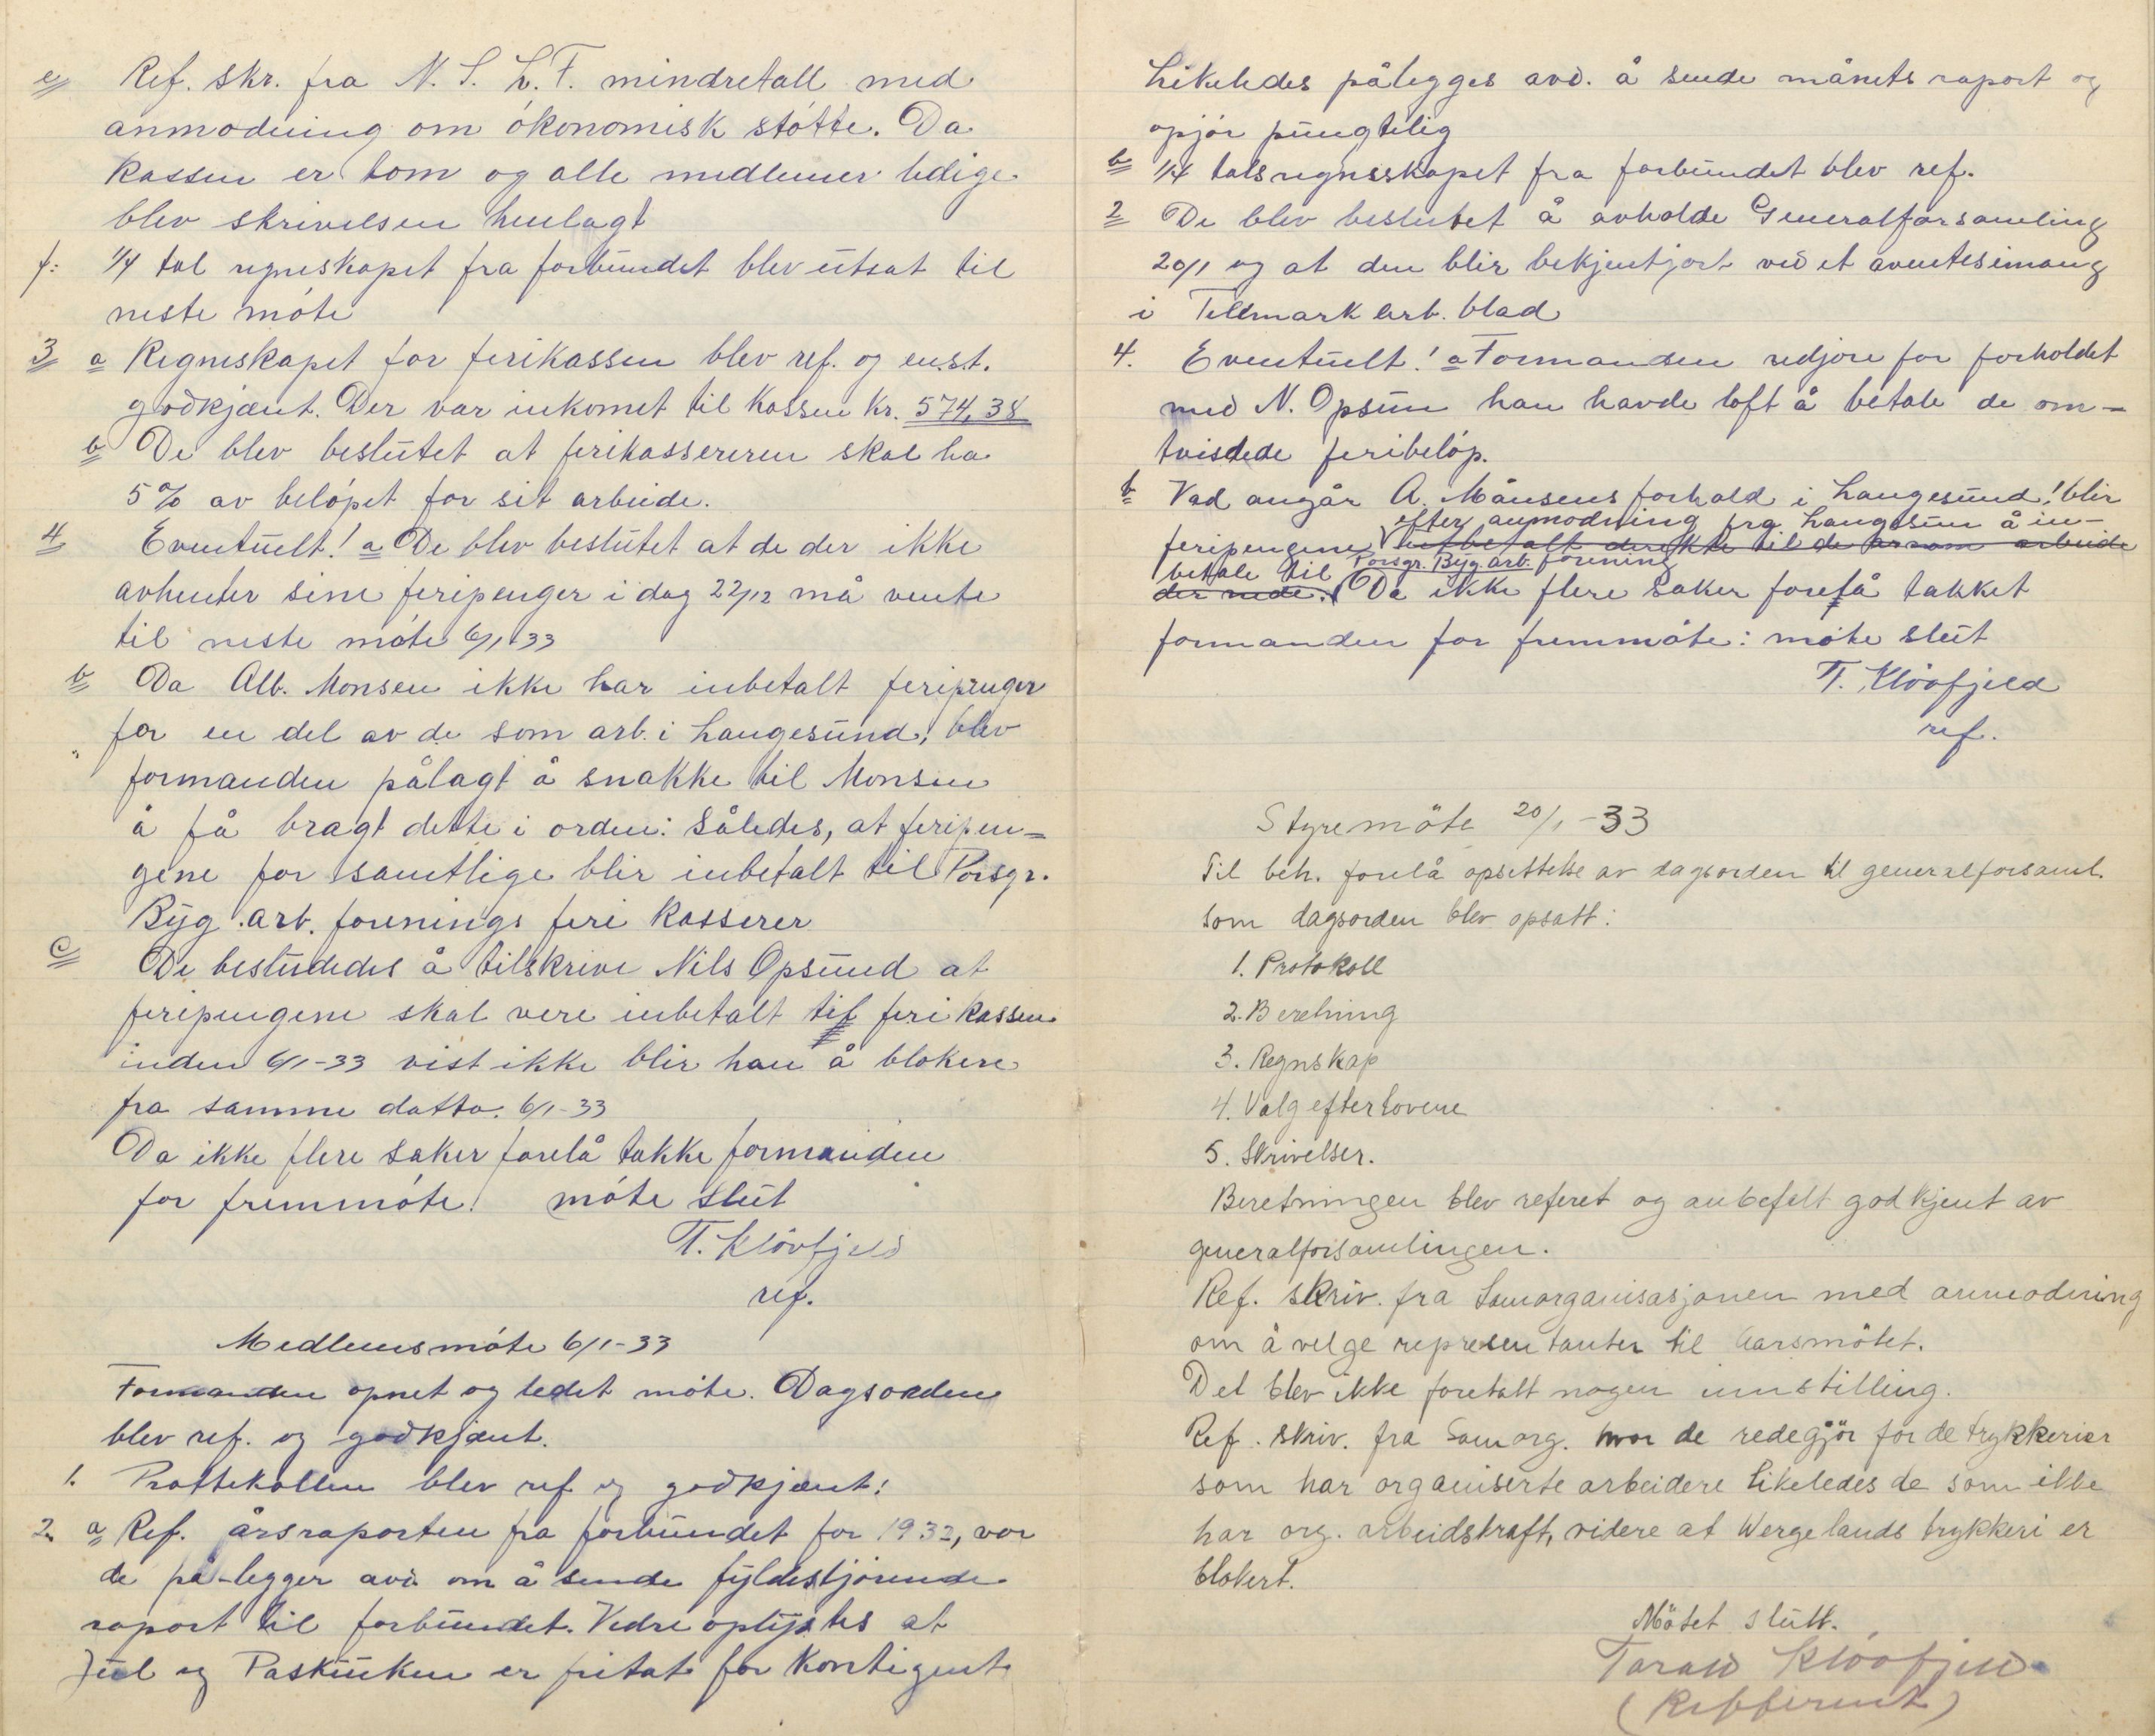 e Ref. skr. fra N. S. L. F. mindretall med
anmodning om ökonomisk stötte. Da
Kassen er tom og alle medlemer ledige
blev skrivelsen henlagt
f: 1/4 tal regneskapet fra forbundet blev utsat til
neste möte
3 a Regneskapet for ferikassen blev ref. og en.s.t.
godkjent. Der var inkomet til Kassen Kr. 574,38
b De blev beslutet at ferikassereren skal ha
5% av belöpet for sit arbeide.
4 Eventuelt! a De blev beslutet at de der ikke
avhenter sine feripenger i dag 22/12 må vente
til neste möte 6/1 33
b Da Alb. Monsen ikke har inbetalt feripenger
for en del av de som arb. i Langesund, blev
formanden pålagt å snakke til Monsen
å få bragt dette i orden: Således, at feripen=
gene for samtlige blir inbetalt til Porsgr.
Byg. arb. forenings feri Kasserer
c De besludedes å tilskrive Nils Opsund at
feripengene skal vere inbetalt til feri Kassen
inden 6/1-33 vist ikke blir han å blokere
fra samme datto. 6/1-33
Da ikke flere saker forelå takke formanden
for fremmöte! möte slut
T. Klövfjeld
ref.
Medlemsmöte 6/1-33
Formanden opnet og ledet möte. Dagsorden
blev ref. og godkjent.
1. Prottekollen blev ref og godkjent:
2. a Ref. årsraporten fra forbundet for 1932, vor
de på-legger avd. om å sende fyldestjörende
raport til forbundet. Vidre oplystes at
Jul og Paskuken er fritat for Kontigent
Likeledes pålegges avd. å sende månets raport og
opjör pungtelig
b 1/4 talsregnsskapet fra forbundet blev ref.
2 De blev beslutet å avholde Generalforsamling
20/1 og at den blir bekjentjort ved et aventesimang
i Tellmark arb. blad
4. Eventuelt! a Formanden redjore for forholdet
med N. Opsun han havde loft å betale de om-
tvistede feribelöp.
b Vad angår A. Månsens forhold i Langesund! blir
efter anmodning fra Langesun å in-
feripengene utbetalt derekte til de som arbeide
betale til Porsgr. Byg. arb. forening
der nede. Da ikke flere saker forelå takket
formanden for fremmöte: möte slut
T. Klövfjeld
ref.
Styremöte 20/1-33
Til beh. forelå opsettelse av dagsorden til generalforsaml.
Som dagsorden blev opsatt:
1. Protokoll
2. Beretning
3. Regnskap
4. Valg efter lovene
5. Skrivelser.
Beretningen blev referet og anbefalt godkjent av
generalforsamlingen.
Ref. skriv. fra Samorganisasjonen med anmodning
om å velge representanter til Aarsmötet.
Det blev ikke foretatt nogen innstilling.
Ref. skriv. fra Samorg. hvor de redegjör for de trykkerier
som har organiserte arbeidere likeledes de som ikke
har org. arbeidskraft, videre at Wergelands trykkeri er
blokert.
Mötet slutt.
Tarald Klövfjeld
(Refferent)